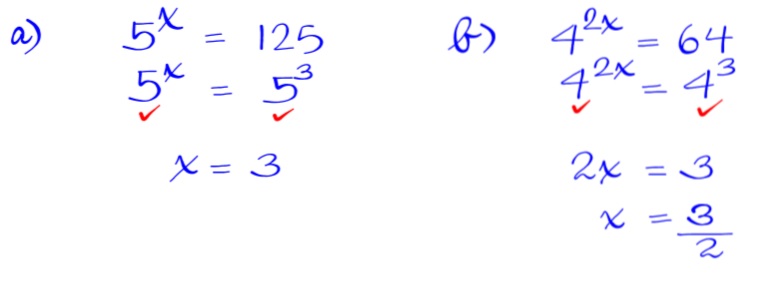 a) 5^x = 125
5^x = 5^3
x = 3
b) 4^{2x} = 64
4^{2x} = 4^3
2x = 3
x = 3/2